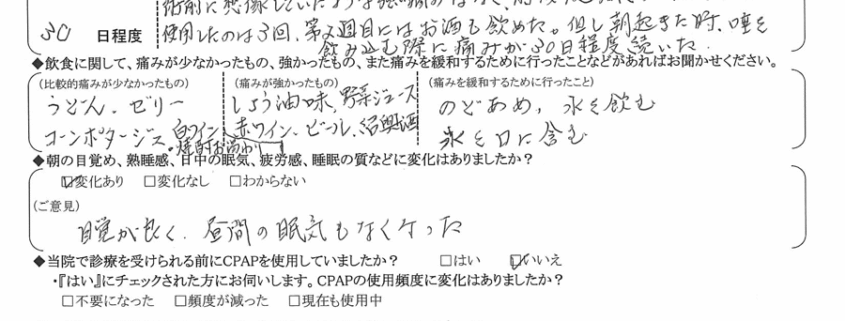 術前に想像していたような強い痛みはなく、
30 日程度 使用したのは3回、第2週目にはお酒も飲めた。但し朝起きた時、唾を
飲み込む際に痛みが30日程度続いた。
◆飲食に関して、痛みが少なかったもの、強かったもの、また痛みを緩和するために行ったことなどがあればお聞かせください。
(比較的痛みが少なかったもの) (痛みが強かったもの) (痛みを緩和するために行ったこと)
うどん、ゼリー しょう油味、野菜ジュース のどあめ、水を飲む
コーンポタージュ 白ワイン 赤ワイン、ビール、紹興酒 氷を口に含む
・焼酎お湯わり
◆朝の目覚め、熟睡感、日中の眠気、疲労感、睡眠の質などに変化はありましたか?
☑変化あり □変化なし □わからない
(ご意見)
目覚が良く、昼間の眠気もなくなった
◆当院で診療を受けられる前にCPAPを使用していましたか? □はい ☑いいえ
・『はい』にチェックされた方にお伺いします。CPAPの使用頻度に変化はありましたか?
□不要になった □頻度が減った □現在も使用中